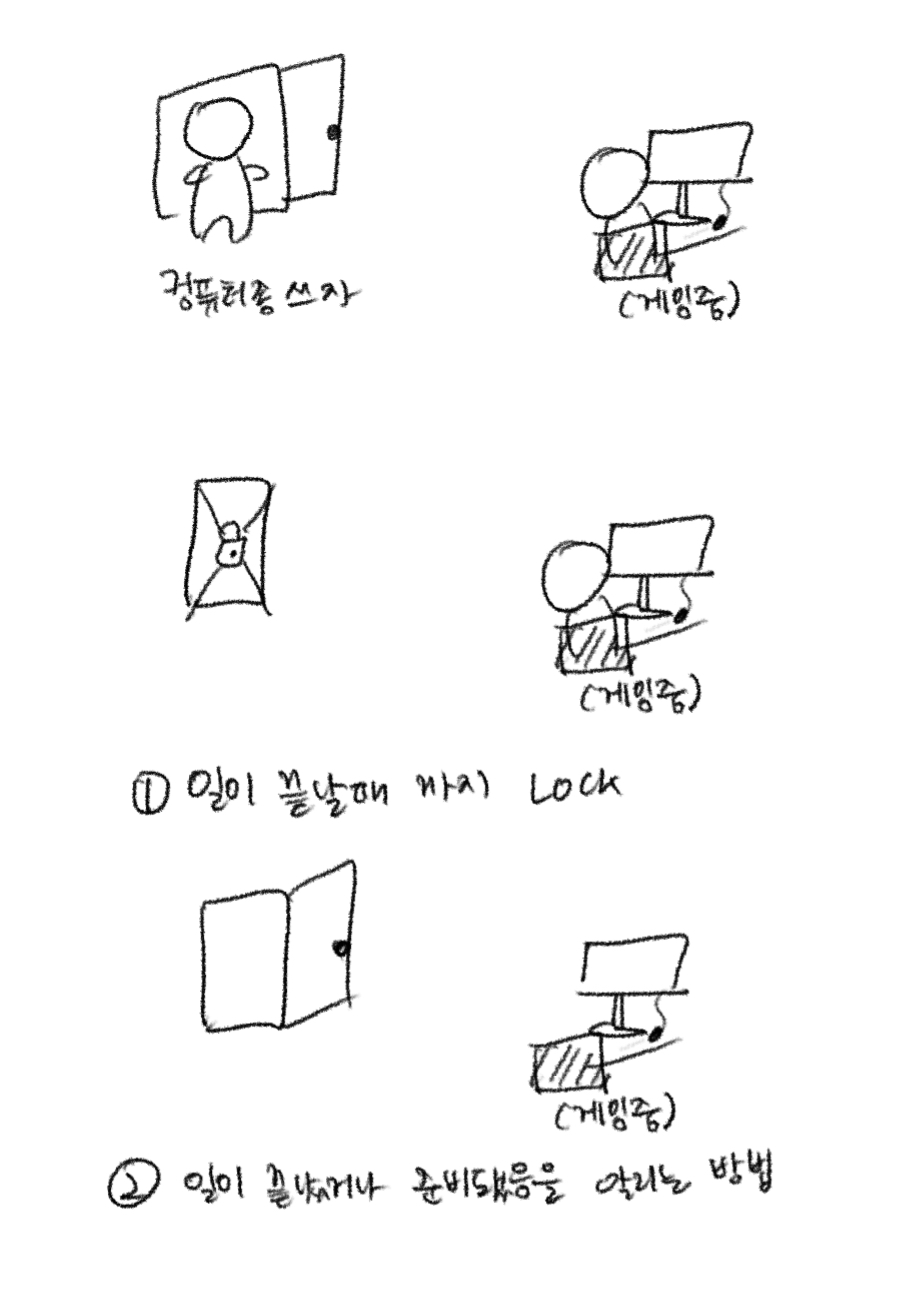 컴퓨터좀 쓰자
(게임중)
(게임중)
① 일이 끝날때 까지 Lock
(게임중)
② 일이 끝났거나 준비됐음을 알리는 방법